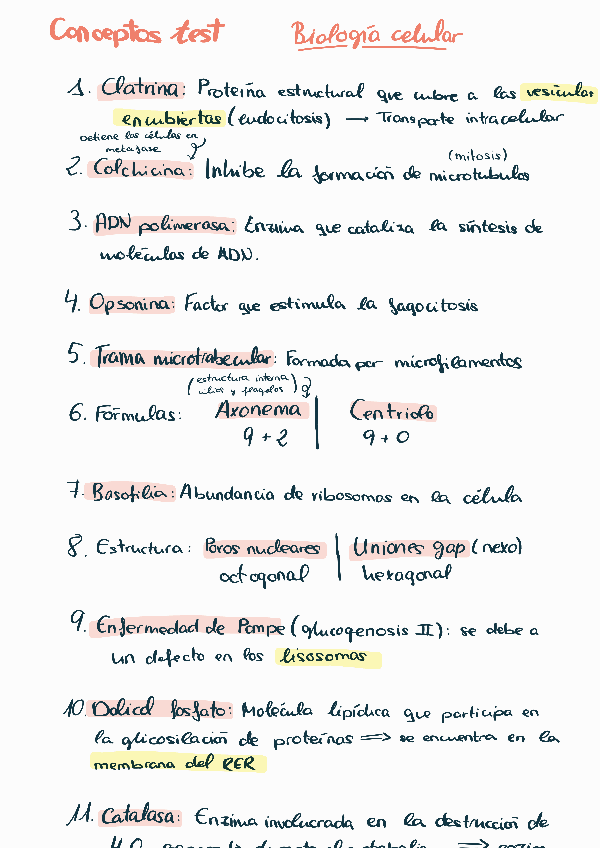 Conceptos test Biología celular
1. Clatrina: Proteína estructural que cubre a las vesículas
encubiertas (endocitosis) → Transporte intracelular
Detiene las células en
metafase
(mitosis)
2. Colchicina: Inhibe la formación de microtubulos
3. ADN polimerasa: Enzima que cataliza la síntesis de
moléculas de ADN.
4. Opsonina: Factor que estimula la fagocitosis
5. Trama microtrabecular: Formada por microfilamentos
(estructura interna
cilios y flagelos)
6. Fórmulas: Axonema | Centriolo
9 + 2 9 + 0
7. Basofilia: Abundancia de ribosomas en la célula
8. Estructura: Poros nucleares | Uniones gap (nexo)
octogonal hexagonal
9. Enfermedad de Pompe (glucogenosis II): se debe a
un defecto en los lisosomas
10. Dolicol fosfato: Molécula lipídica que participa en
la glicosilación de proteínas ⇒ se encuentra en la
membrana del RER
11. Catalasa: Enzima involucrada en la destrucción de